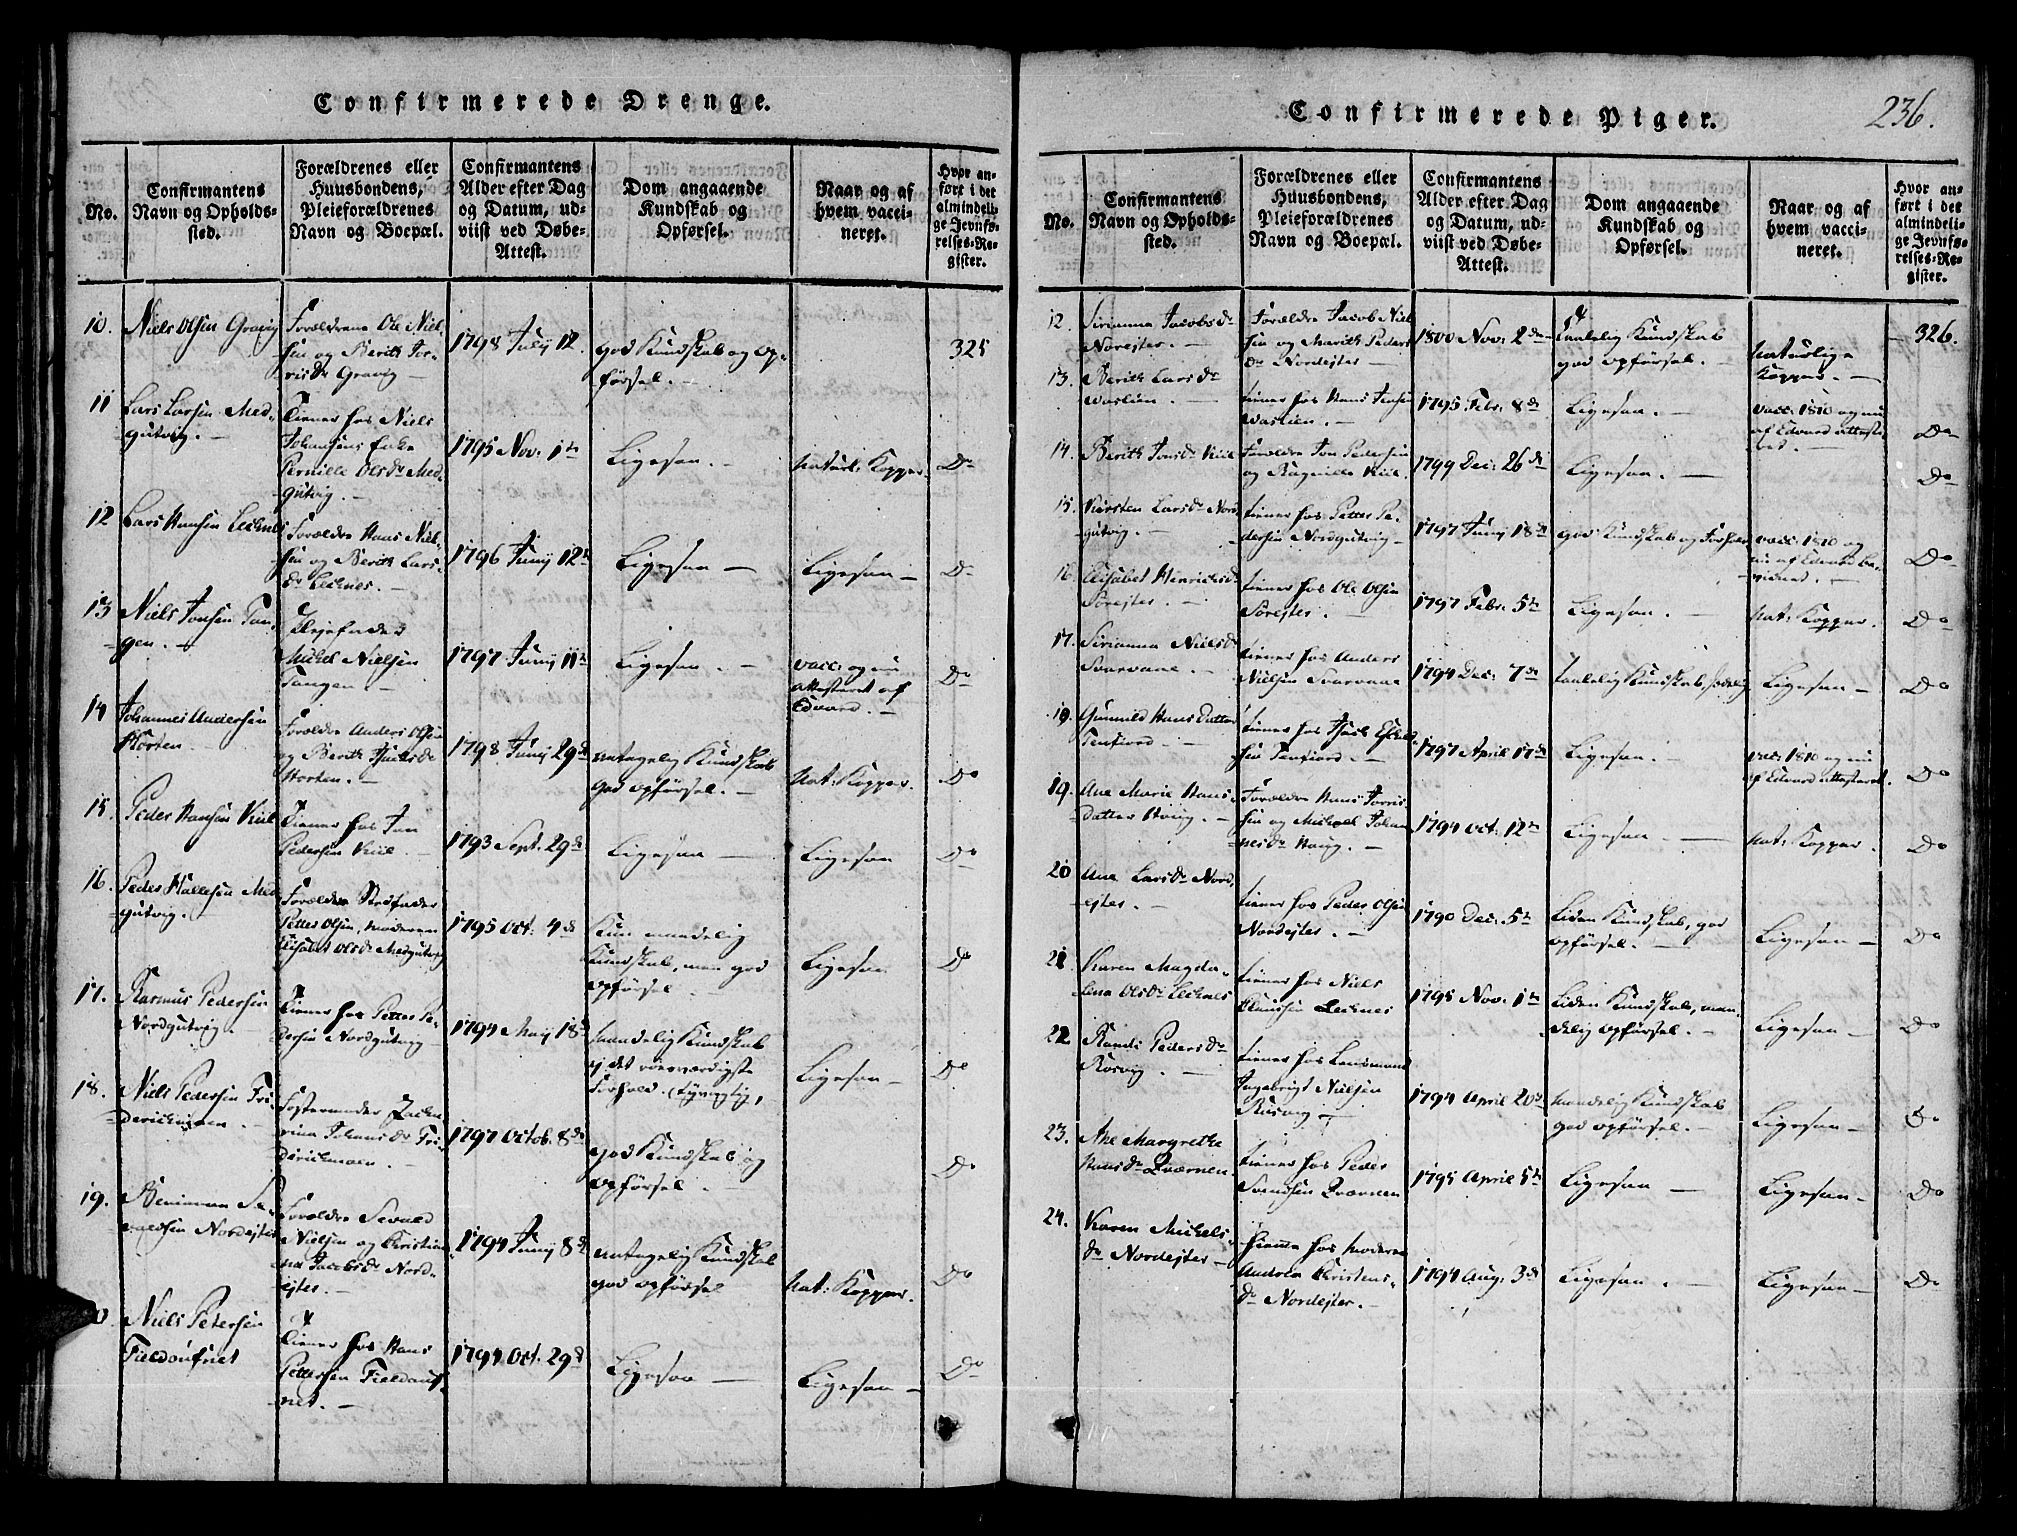 Confirmerede Drenge.
No.
Confirmantens
Navn og Opholds-
sted.
Forældrenes eller
Huusbondens,
Pleieforældrenes
Navn og Boepæl.
Confirmantens
Alder efter Dag
og Datum, ud-
viist ved Døbe-
Attest.
Dom angaaende
Kundskab og
Opførsel.
Naar og af
hvem vacci-
neret.
Hvor an-
ført i det
almindeli-
ge Jevnfø-
relses-Re-
gister.
10.
Niels Olsen Gravig
Forældrene Ole Niel-
sen og Berith Tor-
risdr Gravig —
1798 July 12.
God Kundskab og op-
førsel. —
325
11
Lars Larsen Med-
gutvig. —
Tiener hos Niels
Johansens Enke
Pernille Olsdr Med-
gutvig. —
1795 Nov: 1te
Ligesaa. —
Naturl: Kopper.
Do
12
Lars Hansen Leknes
Forældre Hans Niel-
sen og Berith Lars-
dr Leknes. —
1796 Juny 12te
Ligesaa —
Ligesaa —
Do
13
Niels Jonsen Tan-
gen. —
Michel Nielsen
Tangen. —
1797 Juny 11te
Ligesaa. —
vacc: og nu
attesteret af
Edvard. —
Do
14
Johannes Andersen
Horten. —
Forældre Anders Olsen
og Berith Isachsdr
Horten. —
1798 Juny 29de
antagelig Kundskab
god opførsel. —
Nat: Kopper.
Do
15.
Peder Hansen Kiil
Tiener hos Jon
Pedersen Kiil. —
1793 Sept. 29de
Ligesaa —
Ligesaa
Do
16.
Peder Hallesen Med-
gutvig. —
Forældre Stedfader
Petter Olsen, moderen
Elisabet Olsdr Medgutvig
1795 Oct. 4de
Kun maadelig
Kundskab, men god
opførsel. —
Ligesaa
Do
17.
Rasmus Pedersen
Nordgutvig. —
Tiener hos Petter Pe-
dersen Nordgutvig —
1794 May 18de
maadelig Kundskab
ej det roesværdigste
Forhold.
Ligesaa —
Do
18.
Niels Pedersen Fri-
derichmoen. —
Fostermoder Zacha-
rina Johansdr Fri-
derichmoen. —
1797 Octob. 8de
God Kundskab og
opførsel. —
Do
19.
Beniamin Se-
valdsen Nordejter
Forældre Sevald
Nielsen og Christian-
na Jacobsdr Nord-
ejter. —
1794 Juny 8de
antagelig Kundskab
god opførsel
Nat: Kopper.
Do
Niels Petersen
Fieldoufnet
Tiener hos Hans
Pettersen Fieldouf-
net. —
1794 Oct. 29de
Ligesaa —
Ligesaa —
Do
Confirmerede Piger.
236.
No.
Confirmantens
Navn og Opholds-
sted.
Forældrenes eller
Huusbondens,
Pleieforældrenes
Navn og Boepæl.
Confirmantens
Alder efter Dag
og Datum, ud-
viist ved Døbe-
Attest.
Dom angaaende
Kundskab og
Opførsel.
Naar og af
hvem vacci-
neret.
Hvor an-
ført i det
almindeli-
ge Jevnfø-
relses-Re-
gister.
12.
Sirianna Jacobsdr
Norejter. —
Forældre Jacob Niel-
sen og Marith Peders-
dr Nordejter
1800 Nov: 2de
Taalelig Kundskab
god opførsel. —
Naturlige
Kopper. —
326.
13.
Berith Larsdr
Waslien. —
tiener hos Hans Jensen
Waslien. —
1795 Febr. 8de
Ligesaa. —
vacc. 1810 og nu
af Edvard atteste-
ret. —
Do
14.
Berith Jonsdr Kiil
Forældre Jon Pedersen
og Ragnille Kiil.
1799 Dec: 26de
Ligesaa. —
Do
15.
Kirsten Larsdr Nord-
gutvig. —
tiener hos Petter Pe-
dersen Nordgutvig —
1797 Juny 18de
God Kundskab og Forhold
vacc: 1810 og
nu af Edvard be-
vidnet. —
Do
16.
Elisabet Henrichsdr
Sørejter. —
tiener hos Ole Olsen
Sørejter. —
1797 Febr. 5te
Ligesaa. —
Nat: Kopper.
Do
17.
Sirianna Nielsdr
Svarvane. —
tiener hos Anders
Nielsen Svarvane
1794 Dec: 7de
Taalelig Kundskab, sædelig
Ligesaa —
Do
18.
Gunnild Hans Datter
Tenfiord. —
tiener hos Isach Eschel-
sen Tenfiord. —
1797 April 17de
Ligesaa. —
vacc: 1810 og nu
af Edvard attesteret.
Do
19.
Ane Marie Hans-
datter Houg. —
Forældre Hans Torris-
sen og Michael Johan-
nesdr Houg. —
1794 Oct: 12te
Ligesaa. —
Nat: Kopper.
Do
20
Ane Larsdr Nord-
ejter. —
tiener hos Peder Olsen
Nordejter. —
1790 Dec: 5te
Liden Kundskab, god
opførsel. —
Ligesaa —
Do
21
Karen Magda-
lena Olsdr Leknes
tiener hos Niels
Clausen Leknes
1795 Nov: 1te
Liden Kundskab, maa-
delig opførsel. —
Ligesaa —
Do
22
Randi Pedersdr
Røsvig. —
tiener hos Lensmand
Ingebrigt Nielsen
Røsvig —
1794 April 20de
maadelig Kundskab
god opførsel. —
Ligesaa —
Do
23.
Ane Margrethe
Hansdr Qværnen.
tiener hos Peder
Svendsen Qværnen
1795 April 5te
Ligesaa —
Ligesaa —
Do
24.
Karen Michels-
dr Nordejter —
hiemme hos moderen
Andrea Christens-
dr Nordejter. —
1794 Aug: 3de
Ligesaa. —
Ligesaa —
Do